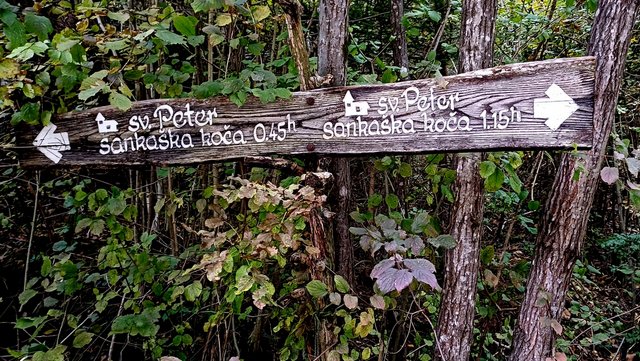 sv. Peter
sankaška koča 0.45h
sv. Peter
sankaška koča 1.15h